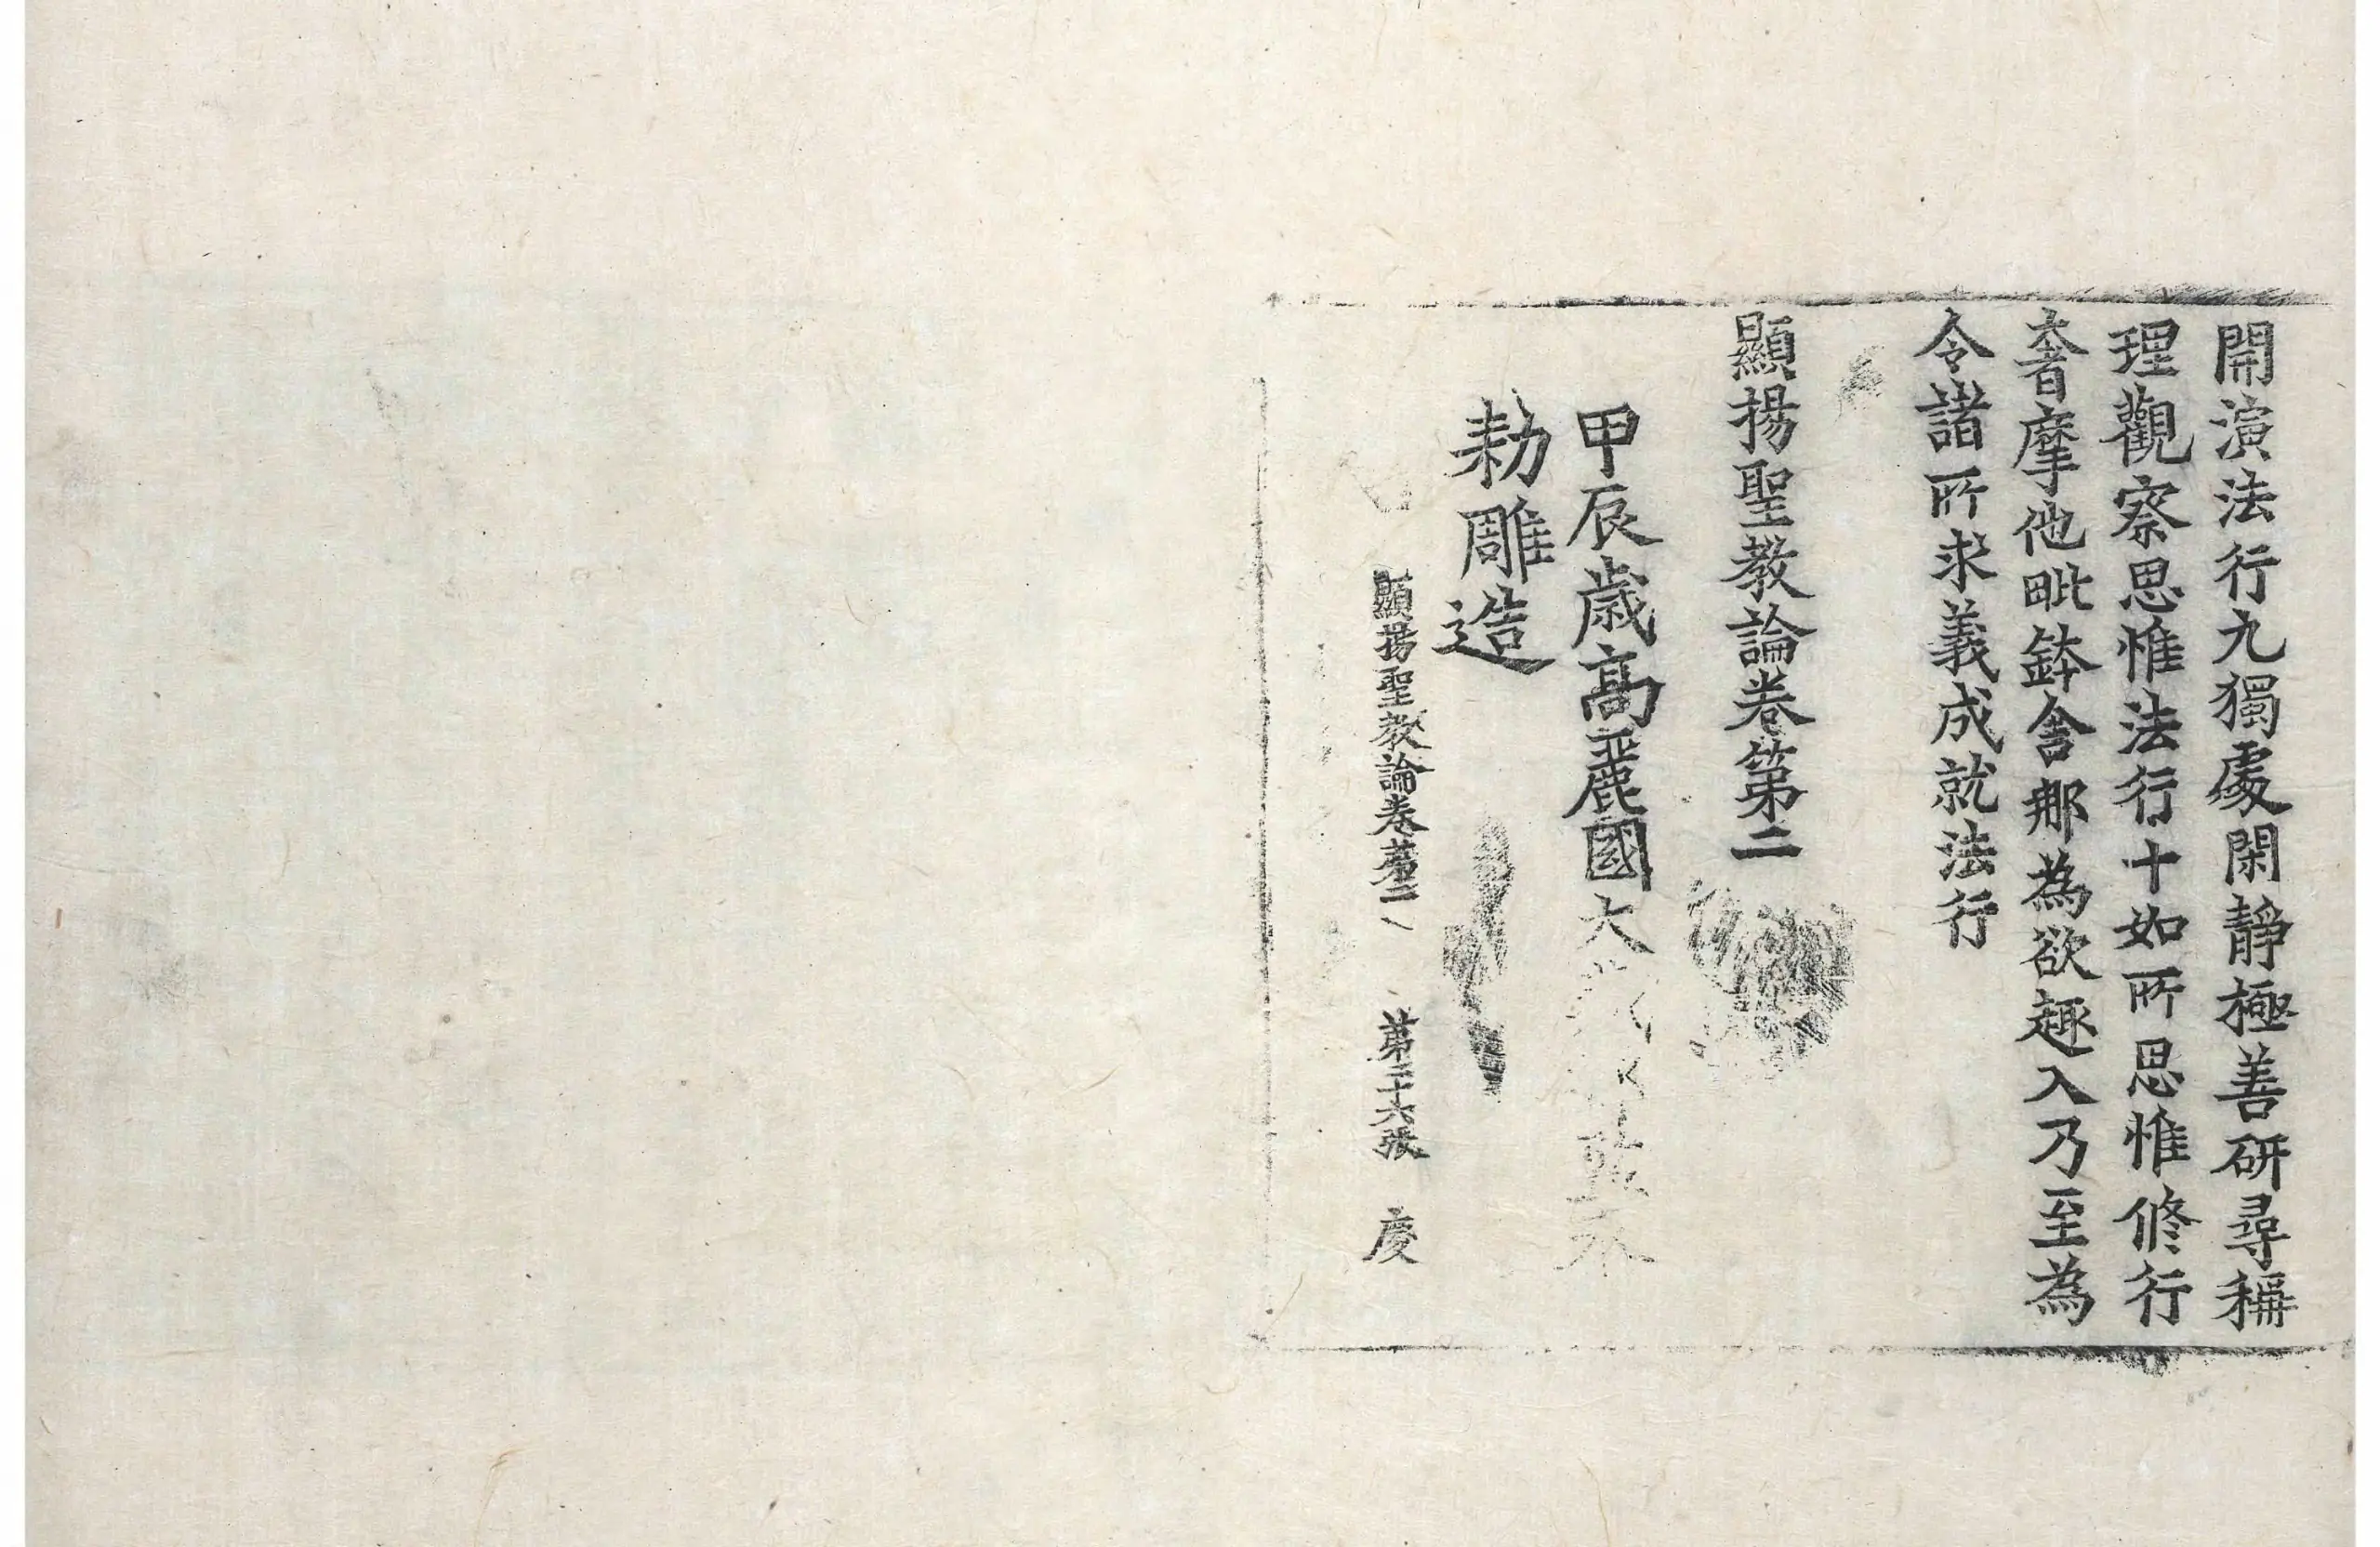 開演法行九獨處閑靜極善研尋稱
理觀察思惟法行十如所思惟修行
奢摩他毗鉢舍那為欲趣入乃至為
令諸所求義成就法行
顯揚聖教論卷第二
甲辰歲高麗國大藏都監奉
勑雕造
顯揚聖教論卷第二 第二十六張 慶